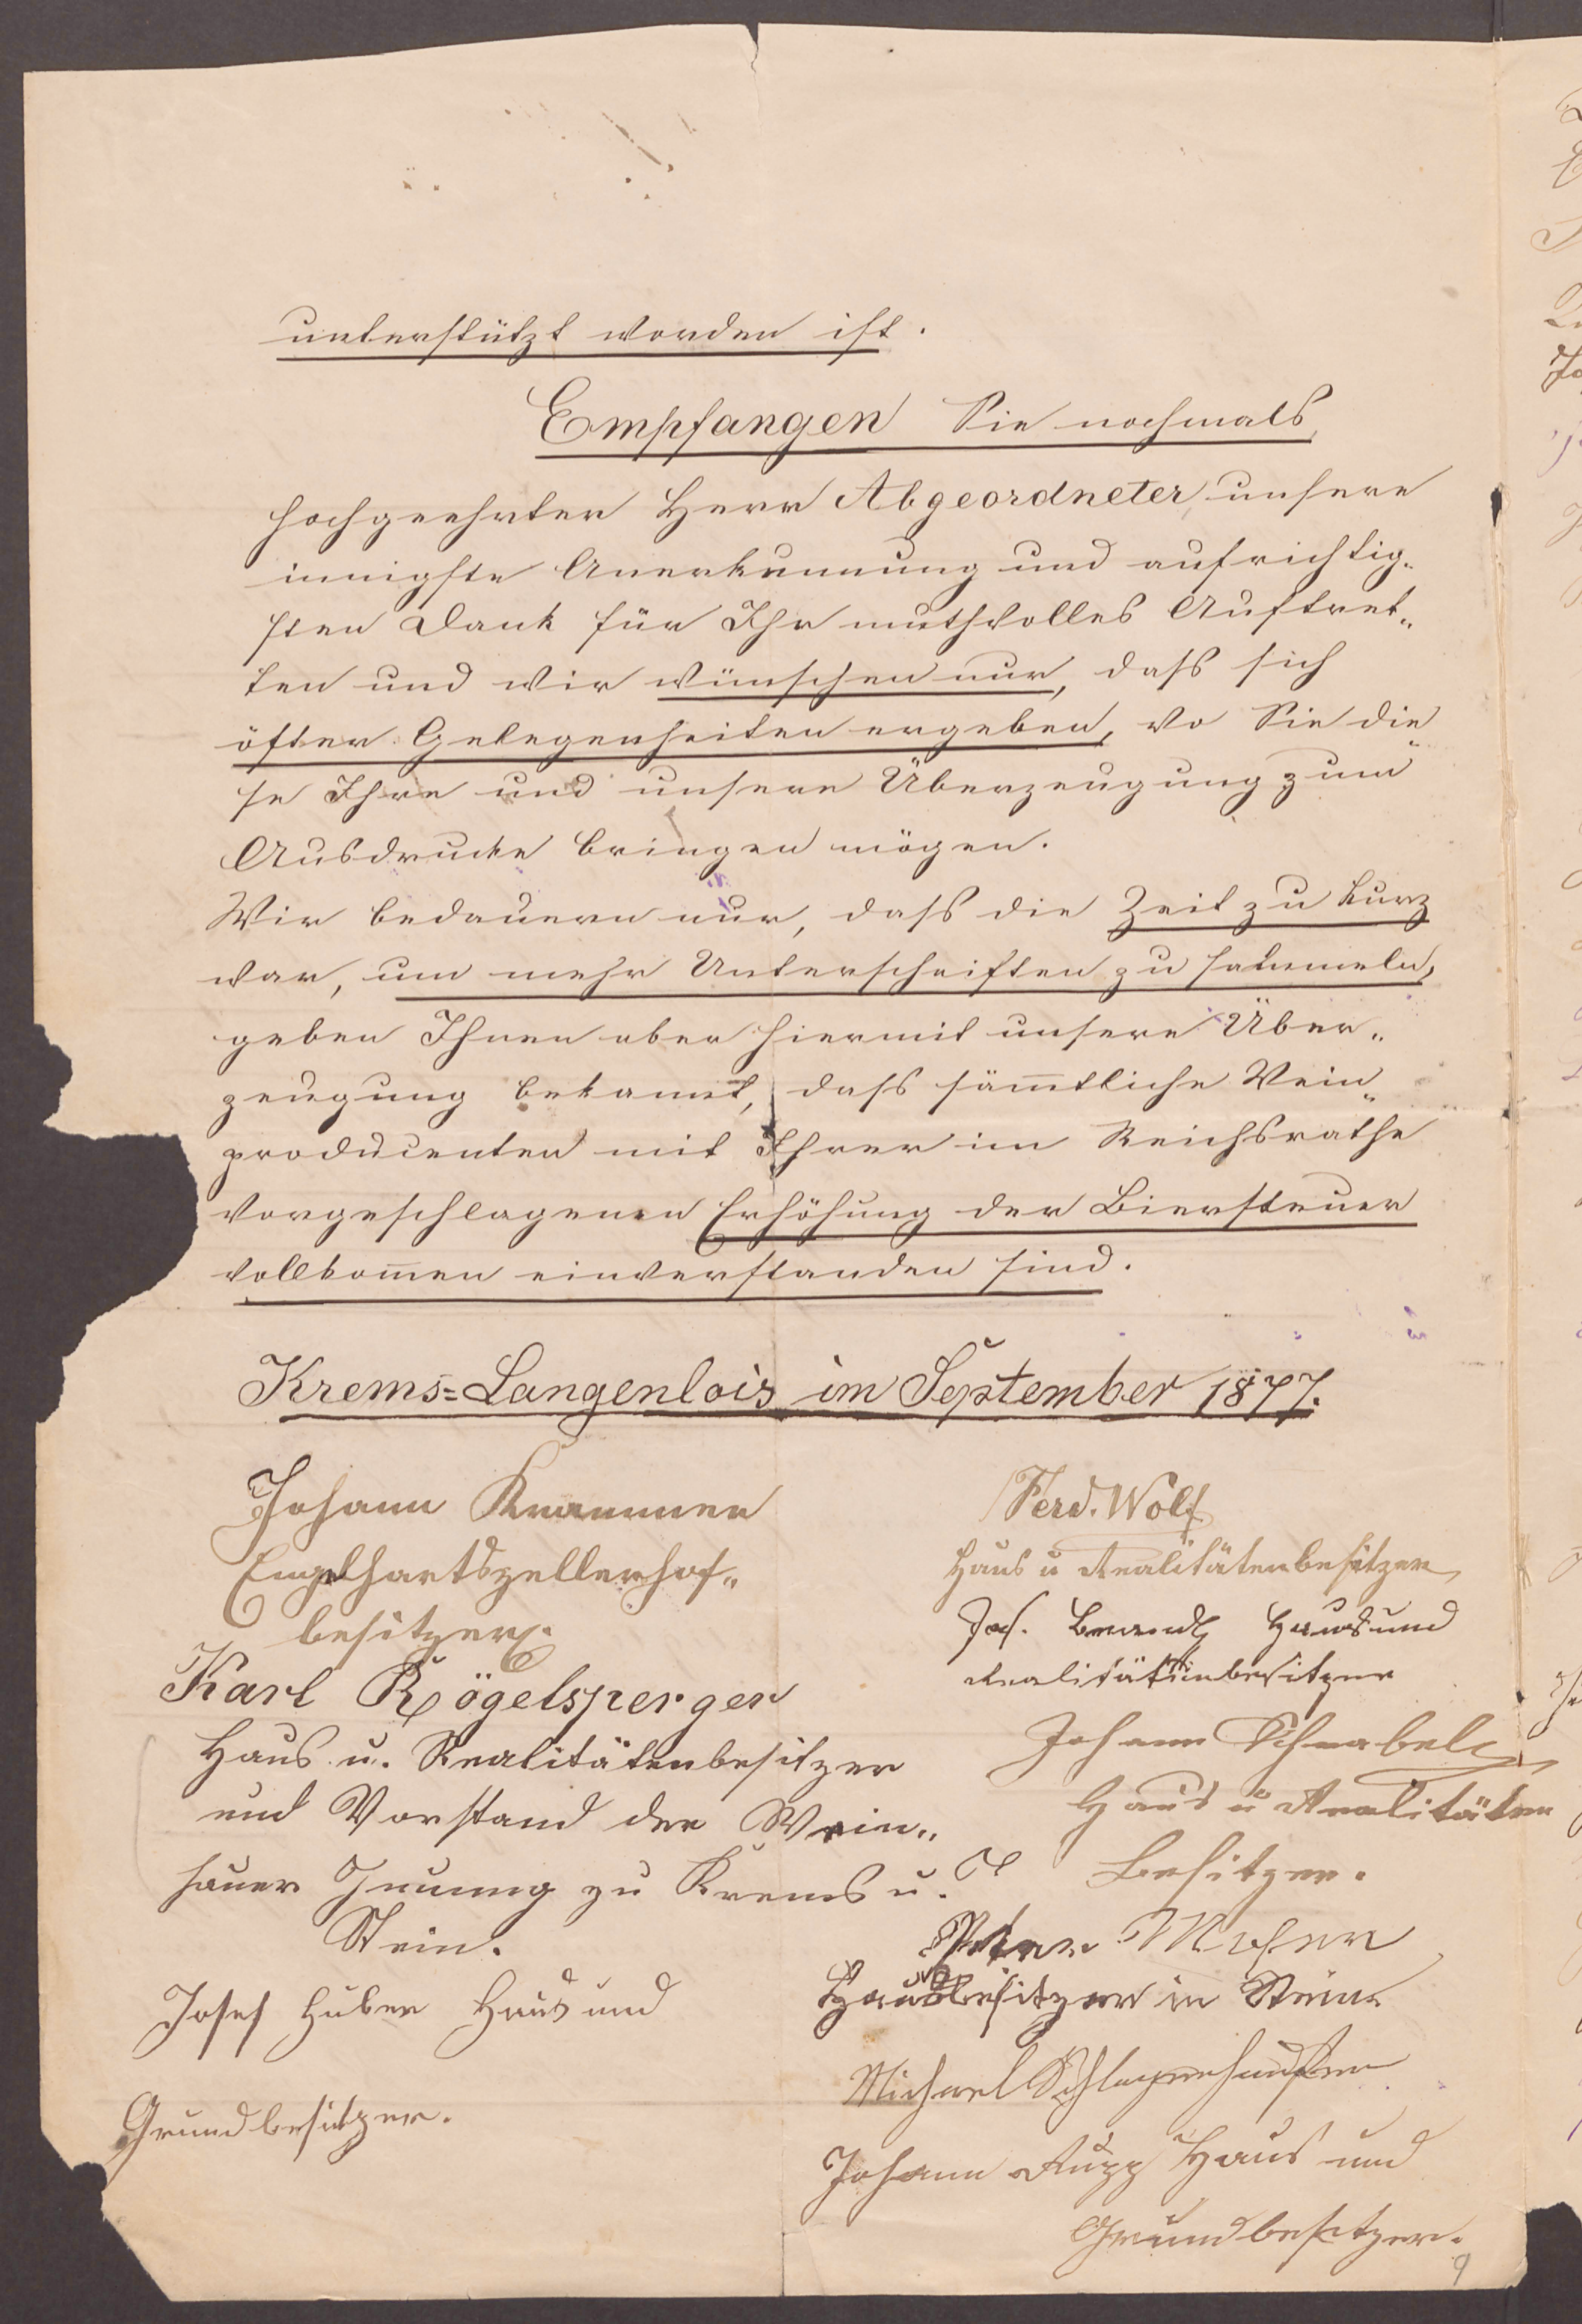 unterstützt worden ist.
Empfangen Sie nochmals,
hochgeehrter Herr Abgeordneter, unsere
innigste Anerkennung und aufrichtig„
sten Dank für Ihr muthvolles Auftret„
ten und wir wünschen nur, daß sich
öfter Gelegenheiten ergeben, wo Sie die„
se Ihre und unsere Überzeugung zum
Ausdrucke bringen mögen.
Wir bedauern nur, daß die Zeit zu kurz
war, um mehr Unterschriften zu sammeln,
geben Ihnen aber hiermit unsere Über„
zeugung bekannt, daß sämmtliche Wein„
producenten mit Ihrer im Reichsrathe
vorgeschlagenen Erhöhung der Biersteuer
vollkommen einverstanden sind.
Krems=Langenlois im September 1877.
Johann Krammer
Engelhartszellerhof„
besitzer.
Karl Rögelsperger
Haus u. Realitätenbesitzer
und Vorstand der Wein„
hauer Innung zu Krems u.
Stein.
Josef Huber Haus und
Grundbesitzer.
Ferd. Wolf
Haus u Realitätenbesitzer
Jos. Brandl Haus und
Realitätenbesitzer
Johann Schnabel
Haus u Realitäten
Besitzer.
Peter Moser
Hausbesitzer in Stein
Michael
Johann Rupp Haus und
Grundbesitzer.
9